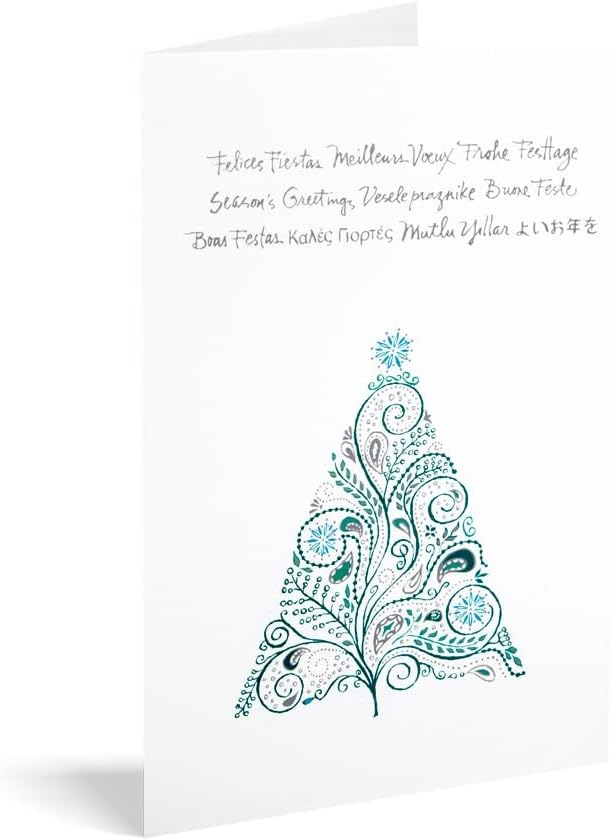 Felices Fiestas Meilleurs Voeux Frohe Festtage
Season's Greetings Vesele praznike Buone Feste
Boas Festas Καλές Γιορτές Mutlu Yıllar よいお年を